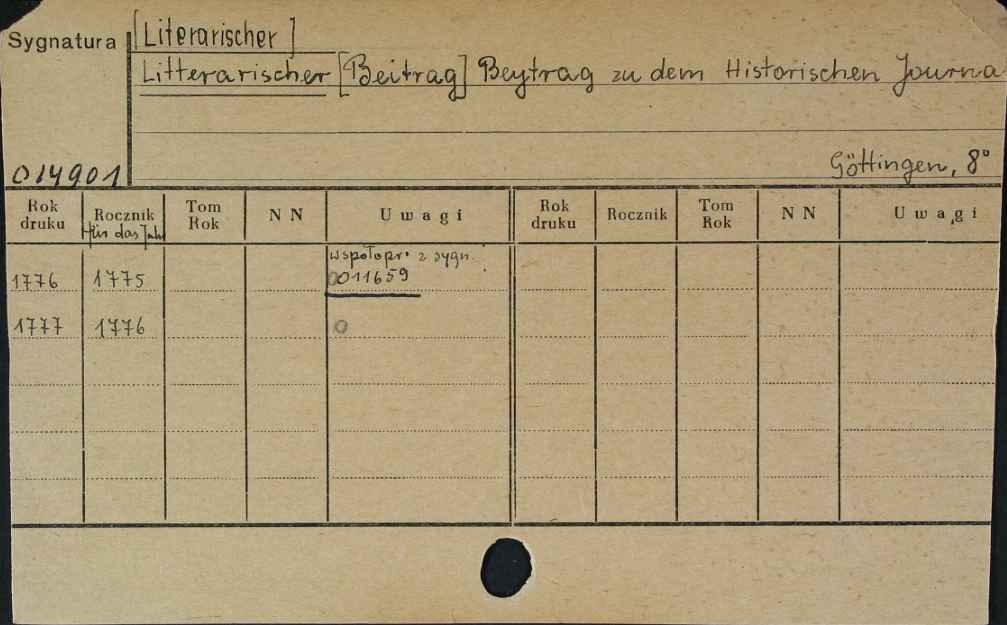 Sygnatura [Literarischer]
Litterarischer [Beitrag] Beytrag zu dem Historischen Journa
014901 Göttingen, 8°
Rok druku Rocznik für das Jahr Tom Rok NN Uwagi Rok druku Rocznik Tom Rok NN Uwagi
wspołopr. z sygn.
1776 1775 011659
1777 1776